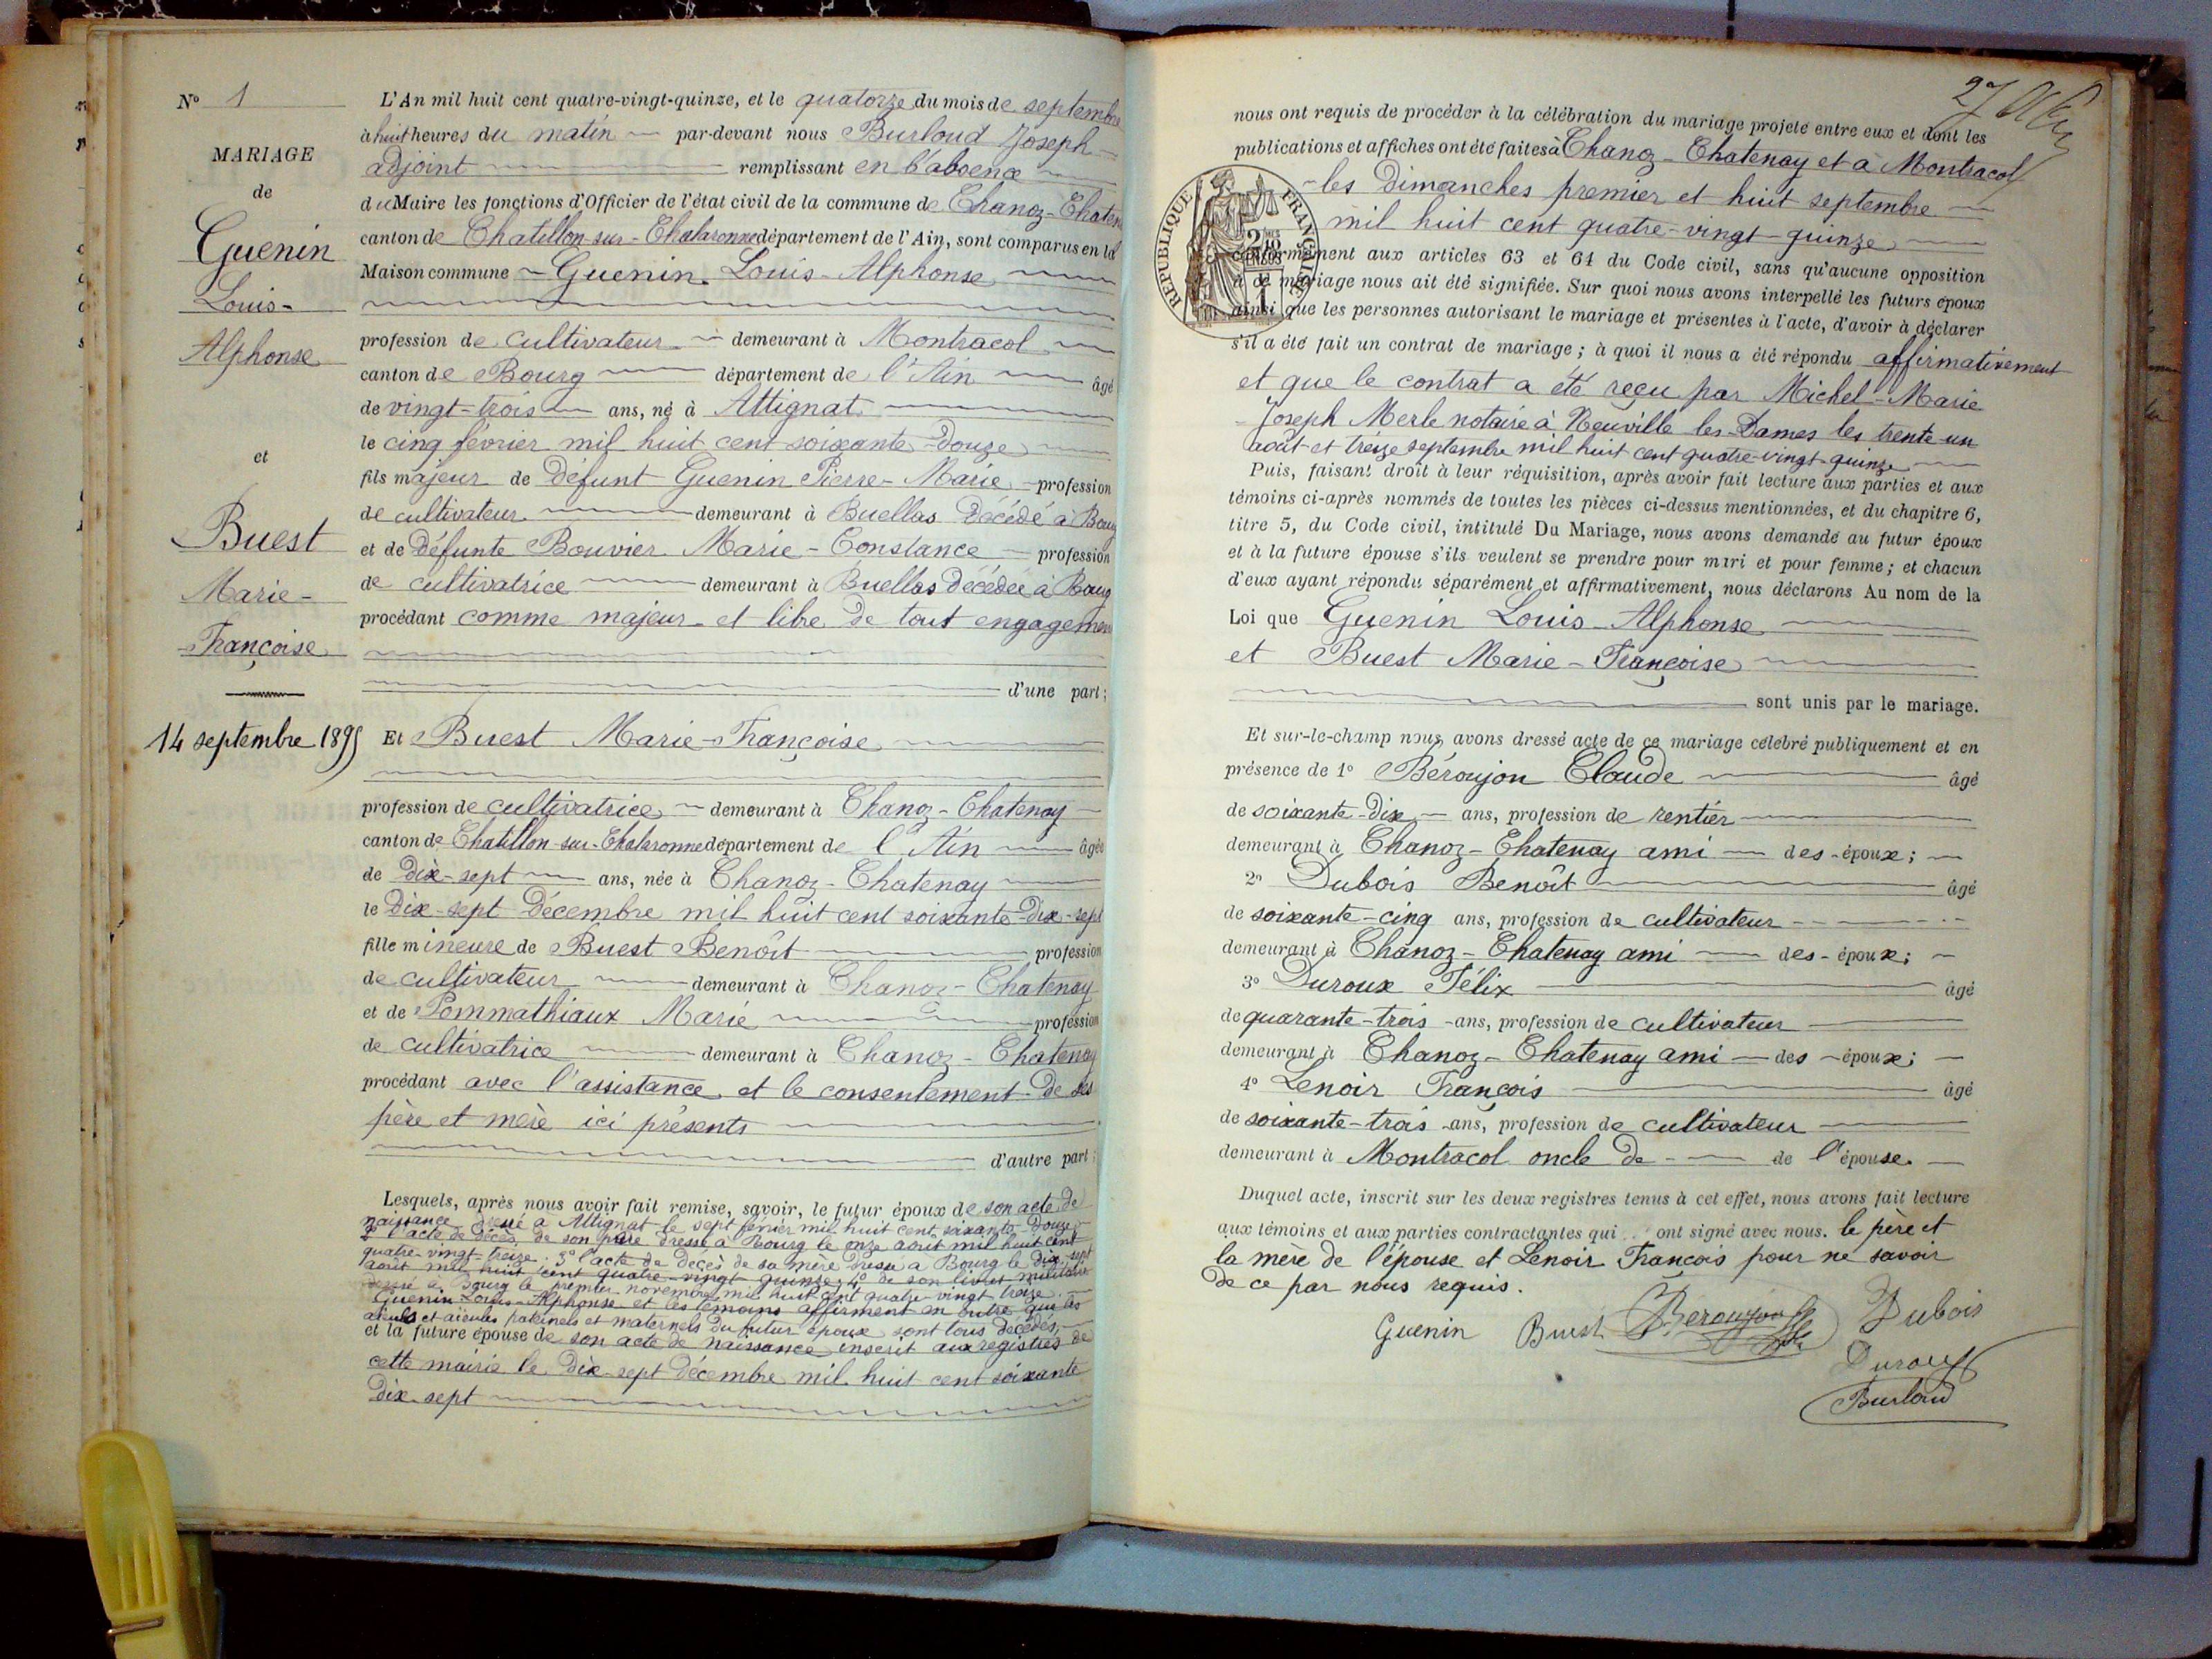 N° 1
MARIAGE
de
Guenin
Louis-
Alphonse
et
Buest
Marie-
Françoise
14 septembre 1895
L'An mil huit cent quatre-vingt-quinze, et le quatorze du mois de septembre
à huit heures du matin par-devant nous Burloud Joseph
adjoint remplissant en l'absence
du Maire les fonctions d'Officier de l'état civil de la commune de Chanoz-Chaten
canton de Chatillon-sur-Chalaronne département de l'Ain, sont comparus en la
Maison commune Guenin Louis-Alphonse
profession de cultivateur demeurant à Montracol
canton de Bourg département de l'Ain âgé
de vingt-trois ans, né à Attignat
le cinq février mil huit cent soixante-douze
fils majeur de Défunt Guenin Pierre-Marie profession
de cultivateur demeurant à Buellas Décédé à Bourg
et de Défunte Bouvier Marie-Constance profession
de cultivatrice demeurant à Buellas Décédée à Bourg
procédant comme majeur et libre de tout engagement
d'une part;
Et Buest Marie-Françoise
profession de cultivatrice demeurant à Chanoz-Chatenay
canton de Chatillon-sur-Chalaronne département de l'Ain âgée
de Dix-sept ans, née à Chanoz-Chatenay
le Dix-sept Décembre mil huit cent soixante-Dix-sept
fille mineure de Buest Benoît profession
de cultivateur demeurant à Chanoz-Chatenay
et de Pommathiaux Marie profession
de cultivatrice demeurant à Chanoz-Chatenay
procédant avec l'assistance et le consentement de ses
père et mère ici présents
d'autre part;
Lesquels, après nous avoir fait remise, savoir, le futur époux de son acte de
naissance dressé à Attignat le sept février mil huit cent soixante-Douze
2° l'acte de décès de son père dressé à Bourg le onze août mil huit cent
quatre-vingt-treize. 3° l'acte de décès de sa mère dressé à Bourg le dix-sept
août mil huit cent quatre-vingt-quinze; 4° de son livret militaire
dressé à Bourg le premier novembre mil huit cent quatre-vingt treize.
Guenin Louis-Alphonse et les témoins affirment en outre que les
aïeuls et aïeules paternels et maternels du futur époux sont tous décédés,
et la future épouse de son acte de naissance inscrit aux registres de
cette mairie le Dix-sept Décembre mil huit cent soixante
Dix-sept
27
nous ont requis de procéder à la célébration du mariage projeté entre eux et dont les
publications et affiches ont été faites à Chanoz-Chatenay et à Montracol
les Dimanches premier et huit septembre
mil huit cent quatre-vingt-quinze
REPUBLIQUE FRANÇAISE
conformément aux articles 63 et 64 du Code civil, sans qu'aucune opposition
à ce mariage nous ait été signifiée. Sur quoi nous avons interpellé les futurs époux
ainsi que les personnes autorisant le mariage et présentes à l'acte, d'avoir à déclarer
s'il a été fait un contrat de mariage; à quoi il nous a été répondu affirmativement
et que le contrat a été reçu par Michel-Marie
Joseph Merle notaire à Neuville les-Dames les trente-un
août et treize septembre mil huit cent quatre-vingt-quinze
Puis, faisant droit à leur réquisition, après avoir fait lecture aux parties et aux
témoins ci-après nommés de toutes les pièces ci-dessus mentionnées, et du chapitre 6,
titre 5, du Code civil, intitulé Du Mariage, nous avons demandé au futur époux
et à la future épouse s'ils veulent se prendre pour mari et pour femme; et chacun
d'eux ayant répondu séparément et affirmativement, nous déclarons Au nom de la
Loi que Guenin Louis-Alphonse
et Buest Marie-Françoise
sont unis par le mariage.
Et sur-le-champ nous avons dressé acte de ce mariage célébré publiquement et en
présence de 1° Béroujon Claude âgé
de soixante-Dix ans, profession de rentier
demeurant à Chanoz-Chatenay ami des époux;
2° Dubois Benoît âgé
de soixante-cinq ans, profession de cultivateur
demeurant à Chanoz-Chatenay ami des époux;
3° Duroux Félix âgé
de quarante-trois ans, profession de cultivateur
demeurant à Chanoz-Chatenay ami des époux;
4° Lenoir François âgé
de soixante-trois ans, profession de cultivateur
demeurant à Montracol oncle de de l'épouse.
Duquel acte, inscrit sur les deux registres tenus à cet effet, nous avons fait lecture
aux témoins et aux parties contractantes qui ont signé avec nous. le père et
la mère de l'épouse et Lenoir François pour ne savoir
de ce par nous requis.
Guenin Buest Béroujon Dubois
Duroux
Burloud